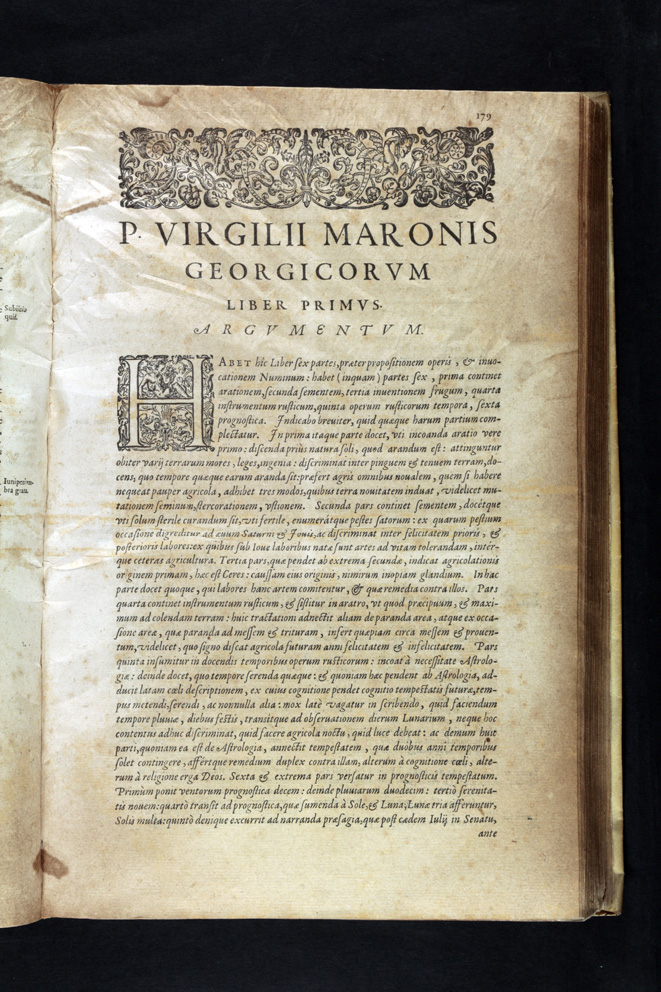 179
P. VIRGILII MARONIS
GEORGICORVM
LIBER PRIMVS.
ARGVMENTVM.
HABET hîc Liber sex partes, præter propositionem operis, & inuo-
cationem Numinum: habet (inquam) partes sex, prima continet
arationem, secunda sementem, tertia inuentionem frugum, quarta
instrumentum rusticum, quinta operum rusticorum tempora, sexta
prognostica. Indicabo breuiter, quid quæque harum partium com-
plectatur. In prima itaque parte docet, vti incoanda aratio vere
primo: discenda priùs natura soli, quod arandum est: attinguntur
obiter varij terrarum mores, leges, ingenia: discriminat inter pinguem & tenuem terram, do-
cens, quo tempore quæque earum aranda sit: præfert agris omnibus noualem, quem si habere
nequeat pauper agricola, adhibet tres modos, quibus terra nouitatem induat, videlicet mu-
tationem seminum, stercorationem, vstionem. Secunda pars continet sementem, docétque
vti solum sterile curandum sit, vti fertile, enumerátque pestes satorum: ex quarum pestium
occasione digreditur ad æuum Saturni & Iouis, ac discriminat inter felicitatem prioris, &
posterioris labores: ex quibus sub Ioue laboribus natæ sunt artes ad vitam tolerandam, intér-
que ceteras agricultura. Tertia pars, quæ pendet ab extrema secundæ, indicat agricolationis
originem primam, hæc est Ceres: caussam eius originis, nimirum inopiam glandium. In hac
parte docet quoque, qui labores hanc artem comitentur, & quæ remedia contra illos. Pars
quarta continet instrumentum rusticum, & sistitur in aratro, vt quod præcipuum, & maxi-
mum ad colendam terram: huic tractationi adnectit aliam de paranda area, atque ex occa-
sione areæ, quæ paranda ad messem & trituram, insert quæpiam circa messem & prouen-
tum, videlicet, quo signo discat agricola futuram anni felicitatem & infelicitatem. Pars
quinta insumitur in docendis temporibus operum rusticorum: incoat à necessitate Astrolo-
giæ: deinde docet, quo tempore serenda quæque: & quoniam hæc pendent ab Astrologia, ad-
ducit latam cœli descriptionem, ex cuius cognitione pendet cognitio tempestatis futuræ, tem-
pus metendi, serendi, ac nonnulla alia: mox latè vagatur in scribendo, quid faciendum
tempore pluuiæ, diebus festis, transitque ad obseruationem dierum Lunarium, neque hoc
contentus adhuc discriminat, quid facere agricola noctu, quid luce debeat: ac demum huic
parti, quoniam ea est de Astrologia, annectit tempestatem, quæ duobus anni temporibus
solet contingere, affértque remedium duplex contra illam, alterum à cognitione cœli, alte-
rum à religione erga Deos. Sexta & extrema pars versatur in prognosticis tempestatum.
Primùm ponit ventorum prognostica decem: deinde pluuiarum duodecim: tertiò serenita-
tis nouem: quartò transit ad prognostica, quæ sumenda à Sole, & Luna; Lunæ tria afferuntur,
Solis multa: quintò denique excurrit ad narranda præsagia, quæ post cædem Iulij in Senatu,
ante
Subiitio
quid.
Iuniperium-
bra grau.